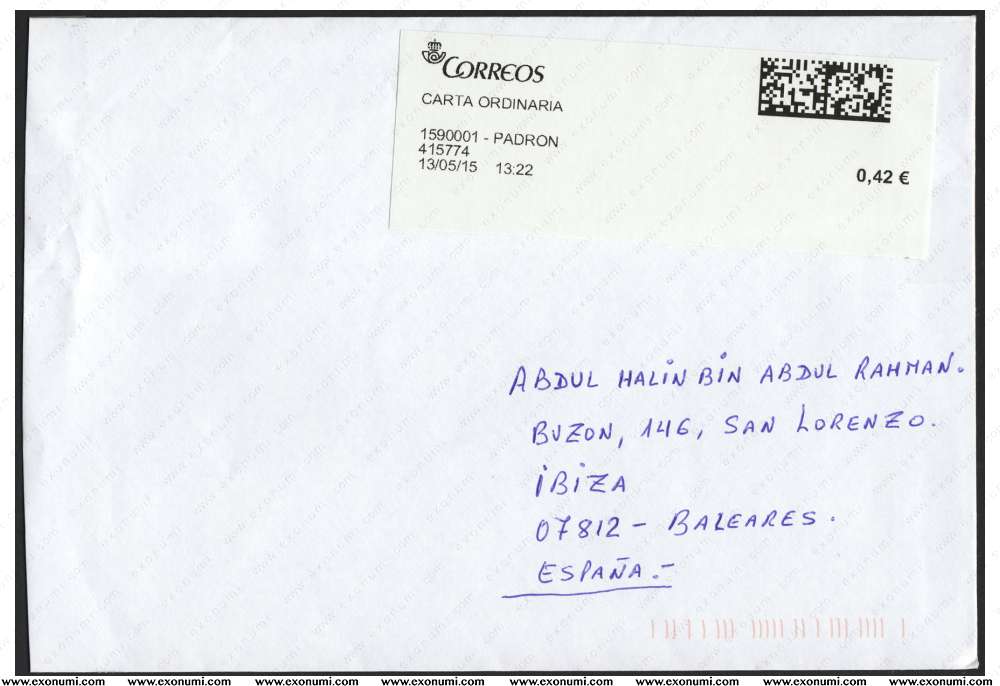 CORREOS
CARTA ORDINARIA
1590001 - PADRON
415774
13/05/15 13:22
0,42 €
ABDUL HALIN BIN ABDUL RAHMAN.
BUZON, 146, SAN LORENZO.
IBIZA
07812 - BALEARES.
ESPAÑA.-
www.exonumi.com www.exonumi.com www.exonumi.com www.exonumi.com www.exonumi.com www.exonumi.com www.exonumi.com www.exonumi.com